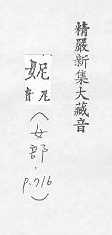 精嚴新集大藏音
妮音尼(女部.p.716)